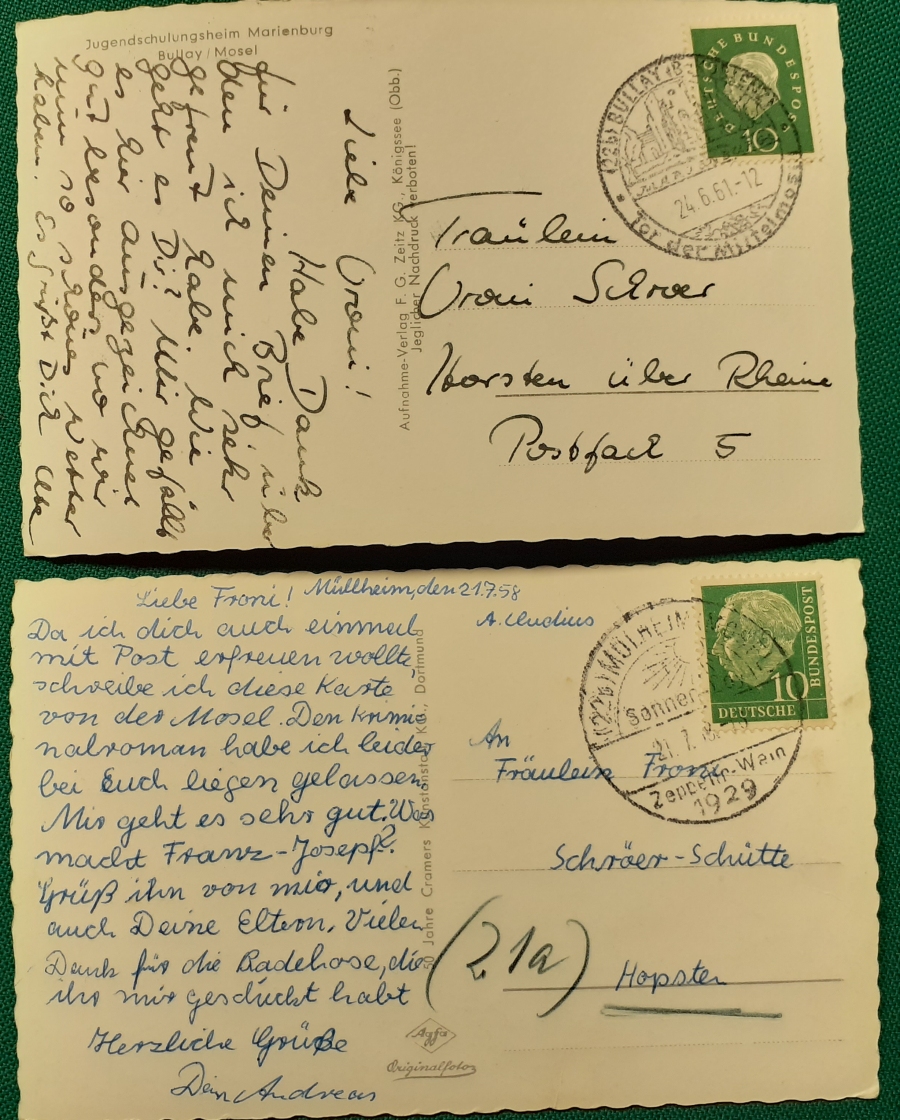 Jugendschulungsheim Marienburg
Bullay / Mosel
Liebe Vroni!
Habe Dank
für Deinen Brief, über
den ich mich sehr
gefreut habe. Wie
geht es Dir? Mir gefällt
es hier ausgezeichnet
gut besonders wo wir
nun so schönes Wetter
haben. Es grüßt Dich
Aufnahme-Verlag F. G. Zeitz KG., Königssee (Obb.)
Jeglicher Nachdruck verboten!
DEUTSCHE BUNDESPOST
10
(22b) BULLAY
24.6.61.-12
Tor der Mittelmosel
Fräulein
Vroni Schroer
Horsten über Rheine
Postfach 5
Liebe Froni! Müllheim, den 21.7.58
Da ich dich auch einmal
mit Post erfreuen wollte
schreibe ich diese Karte
von der Mosel. Den Krimi-
nalroman habe ich leider
bei Euch liegen gelassen.
Mir geht es sehr gut. Was
macht Franz-Josepf?
Grüß ihn von mir, und
auch Deine Eltern. Vielen
Dank für die Badehose, die
ihr mir geschickt habt
Herzliche Grüße
Dein Andreas
50 Jahre Cramers Kunstanstalt KG., Dortmund
Agfa
Originalfoto
(22b) MÜLHEIM
Sonnen
21.7.
Zeppelin-Wein
1929
10
DEUTSCHE
BUNDESPOST
An
Fräulein Froni
Schröer-Schütte
(21a) Hopsten